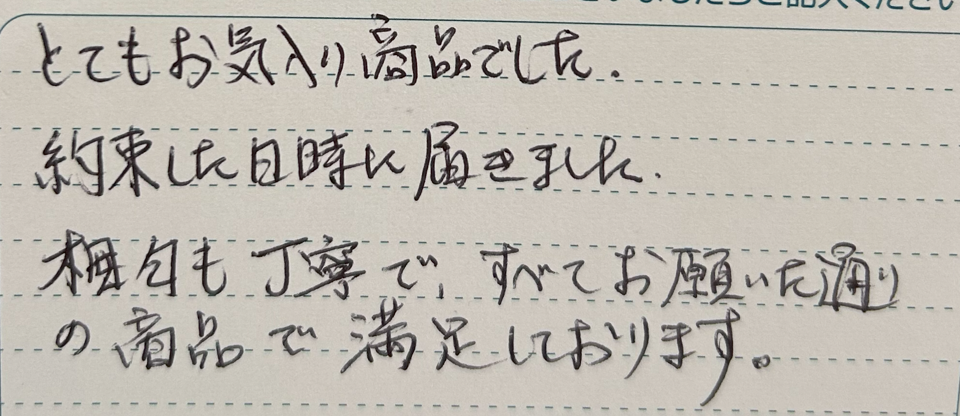 とてもお気入り商品でした.
約束した日時に届きました.
梱包も丁寧で、すべてお願いた通り
の商品で満足しております。